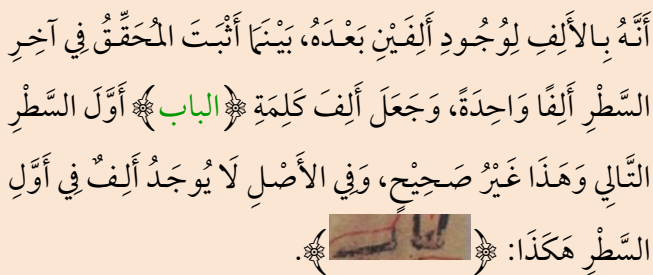 أَنَّهُ بِالأَلِفِ لِوُجُودِ أَلِفَيْنِ بَعْدَهُ، بَيْنَمَا أَثْبَتَ المُحَقِّقُ فِي آخِرِ
السَّطْرِ أَلِفًا وَاحِدَةً، وَجَعَلَ أَلِفَ كَلِمَةِ ﴿الباب﴾ أَوَّلَ السَّطْرِ
التَّالِي وَهَذَا غَيْرُ صَحِيْحٍ، وَفِي الأَصْلِ لَا يُوجَدُ أَلِفٌ فِي أَوَّلِ
السَّطْرِ هَكَذَا: ﴿ ﴾.